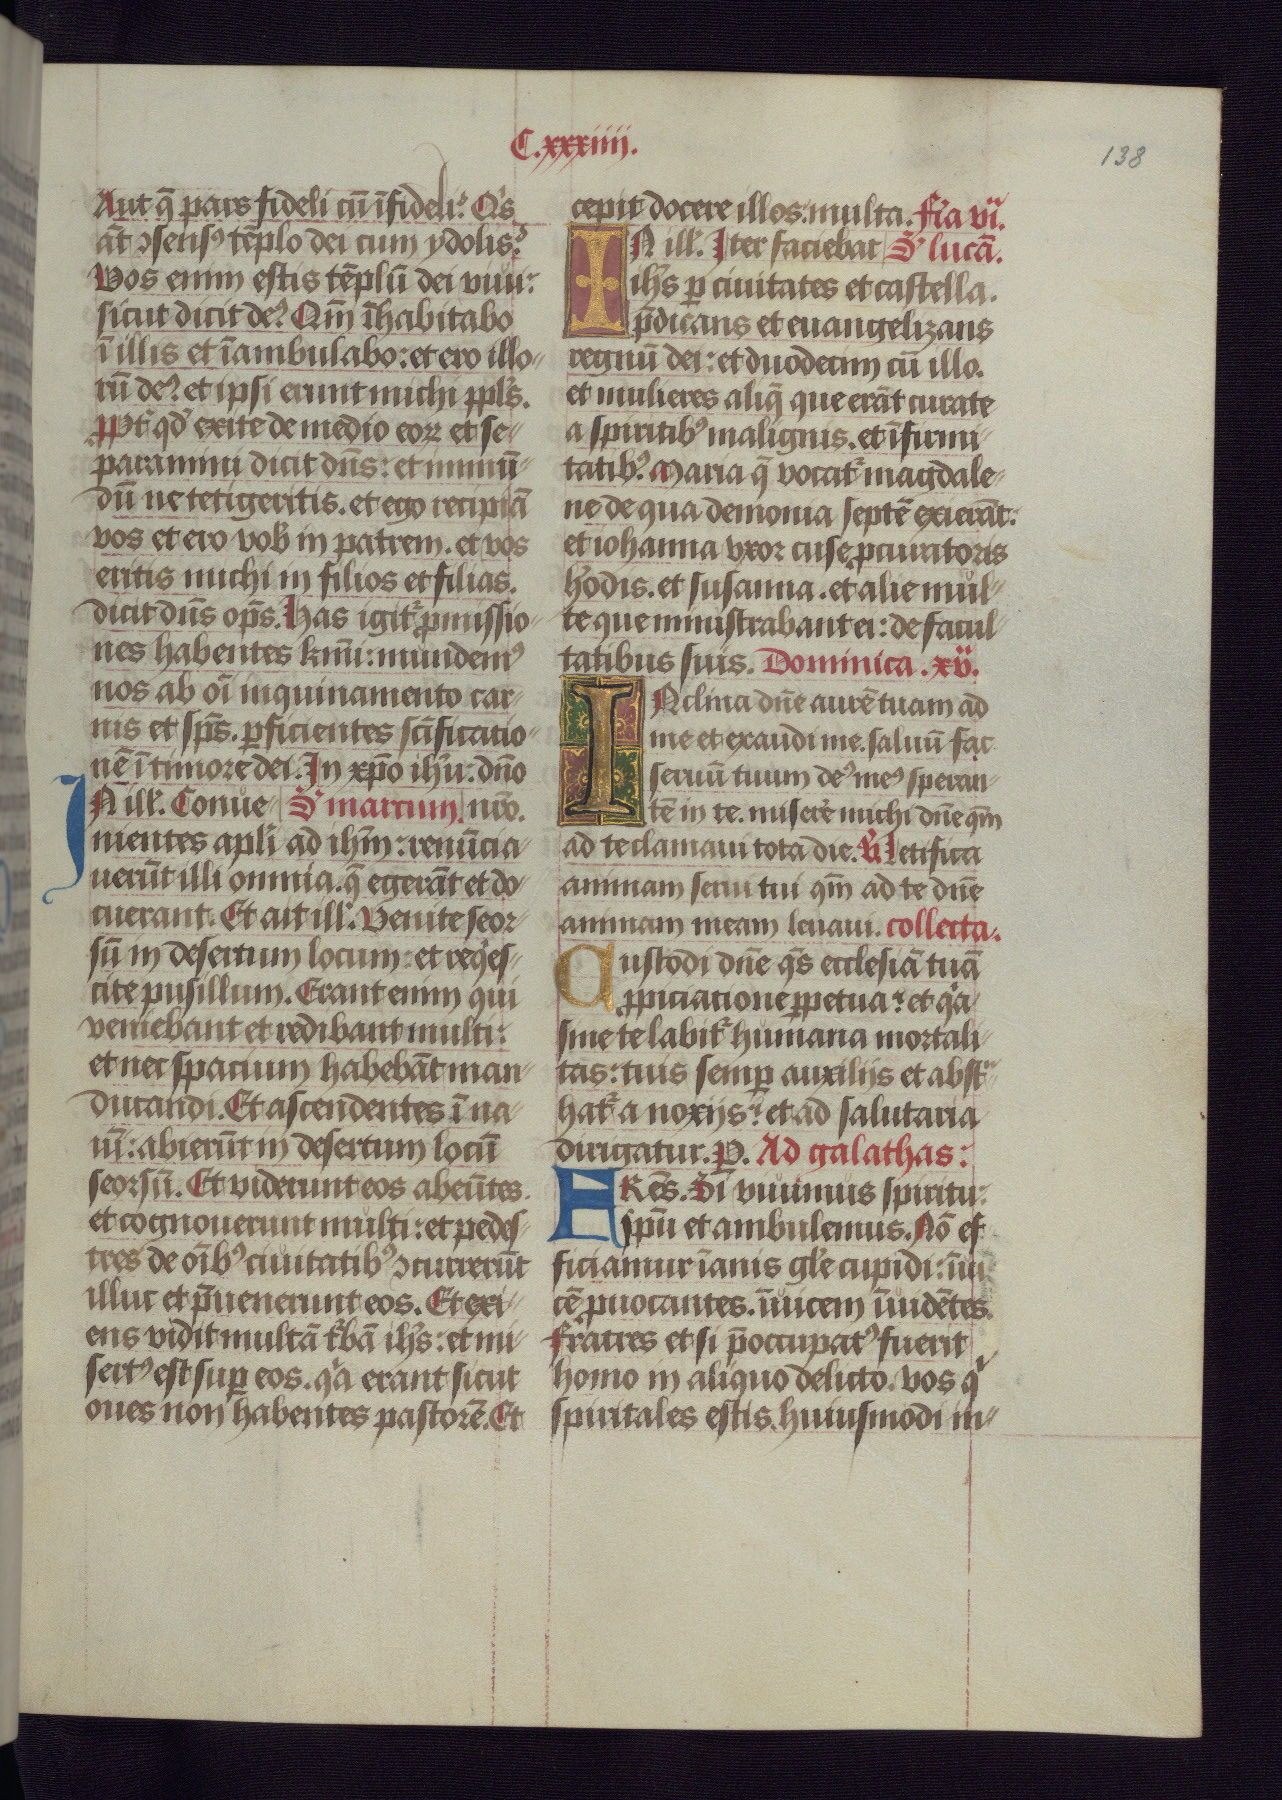 C.xxxiiii.
138
Aut q̄ pars fideli cū īfideli? Qis
āt ↄsensꝰ tēplo dei cum ydolis?
Vos enim estis tēplū dei viui:
sicut dicit deꝰ. Qm̄ īhabitabo
ī illis et īambulabo: et ero illo-
rū deꝰ et ipsi erunt michi ppl's.
Ppt' qd' exite de medio eoꝝ et se-
paramini dicit dn̄s: et inmū-
dū ne tetigeritis. et ego recipiā
vos et ero vob' in patrem. et vos
eritis michi in filios et filias.
dicit dn̄s op̄s. Has igit᷑ ꝓmissio-
nes habentes km̄i: mundemꝰ
nos ab oī inquinamento car-
nis et sp̄s. ꝑficientes sc̄ificatio-
nē ī timore dei. In xp̄o ihu: dn̄o
IN ill'. Conue S' marcum. nr̄o.
nientes apl'i ad ihm̄: renūcia-
uerūt illi omnia. q̄ egerāt et do-
cuerant. Et ait ill'. Venite seor-
sū in desertum locum: et reqies-
cite pusillum. Erant enim qui
veniebant et redibant multi:
et nec spacium habebāt man-
ducandi. Et ascendentes ī na-
uī: abierūt in desertum locū
seorsū. Et viderunt eos abeūtes.
et cognouerunt multi: et pedes-
tres de oīb' ciuitatibꝰ ↄcurrerūt
illuc et p̄uenerunt eos. Et exi-
ens vidit multā t'bā ih's: et mi-
sertꝰ est suꝑ eos. qa erant sicut
oues non habentes pastorē. Et
cepit docere illos: multa. fr̄a vi.
IN ill'. Iter faciebat S' lucā.
ih's ꝑ ciuitates et castella.
p̄dicans et euangelizans
regnū dei: et duodecim cū illo.
et mulieres aliq̄ que erāt curate
a spiritibꝰ malignis. et īfirmi-
tatibꝰ. Maria q̄ vocat᷑ magdale-
ne de qua demonia septē exierāt:
et iohanna vxor cuse ꝓcuratoris
h'odis. et susanna. et alie mul-
te que ministrabant ei: de facul-
tatibus suis. Dominica .xv.
INclina dn̄e aurē tuam ad
me et exaudi me. saluū fac
seruū tuum deꝰ meꝰ speran-
tē in te. miserē michi dn̄e qm̄
ad te clamaui tota die. V̉ Letifica
animam serui tui qm̄ ad te dn̄e
animam meam leuaui. collecta.
Custodi dn̄e qs̄ ecclesiā tuā
ꝓpiciatione ꝑpetua: et qa
sine te labit᷑ humana mortali-
tas: tuis semꝑ auxiliis et abst'-
hat᷑ a noxiis: et ad salutaria
dirigatur. P. Ad galathas:
FRēs. Si viuimus spiritu:
spū et ambulemus. Nō ef-
ficiamur īanis gl'e cupidi: īui
cē ꝓuocantes. īuicem īuidētes.
Fratres et si p̄occupatꝰ fuerit
homo in aliquo delicto. vos qi
spiritales estis. huiusmodi in-